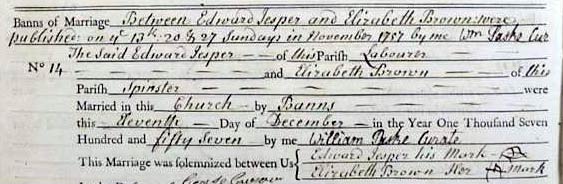 Banns of Marriage Between Edward Jesper and Elizabeth Brown were
published on ye 13th 20 & 27 Sundays in November 1757 by me Wm Paske Cur
The Said Edward Jesper — of this Parish Labourer
No 14 — and Elizabeth Brown — of this
Parish Spinster — were
Married in this Church — by Banns —
this Eleventh — Day of December — in the Year One Thousand Seven
Hundred and fifty Seven — by me William Paske Curate
This Marriage was solemnized between Us { Edward Jesper his Mark
Elizabeth Brown Her Mark